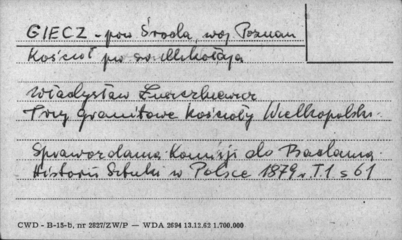 GIECZ - pow Środa, woj Poznan
Kościoł pw św Mikołaja
Władysław Łuszczkiewicz
Trzy granitowe kościoły Wielkopolski.
Sprawozdania Komisji do Badania
Historii Sztuki w Polsce 1879 r. T.1 s 61
CWD - B-15-b, nr 2827/ZW/P — WDA 2694 13.12.62 1.700.000